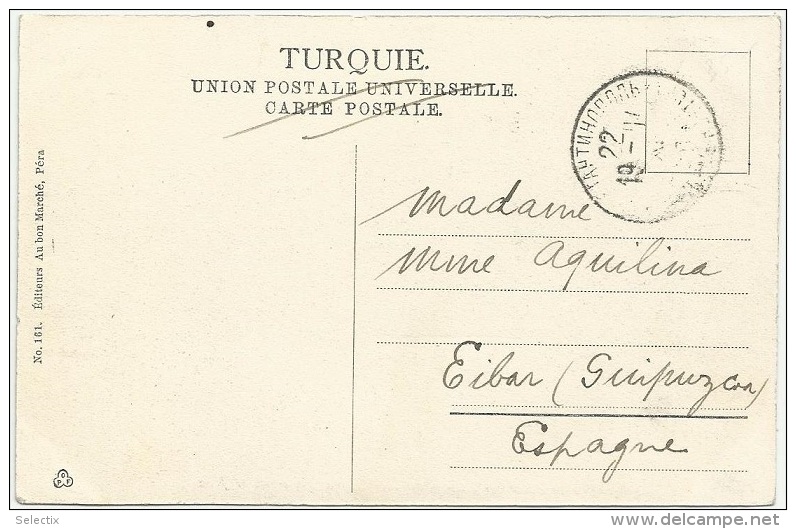 TURQUIE.
UNION POSTALE UNIVERSELLE.
CARTE POSTALE.
22
19
Madame
Mme Aquilina
Eibar (Guipuzcoa)
Espagne
No. 161. Éditeurs Au bon Marché, Péra
Selectix
delcampe.net